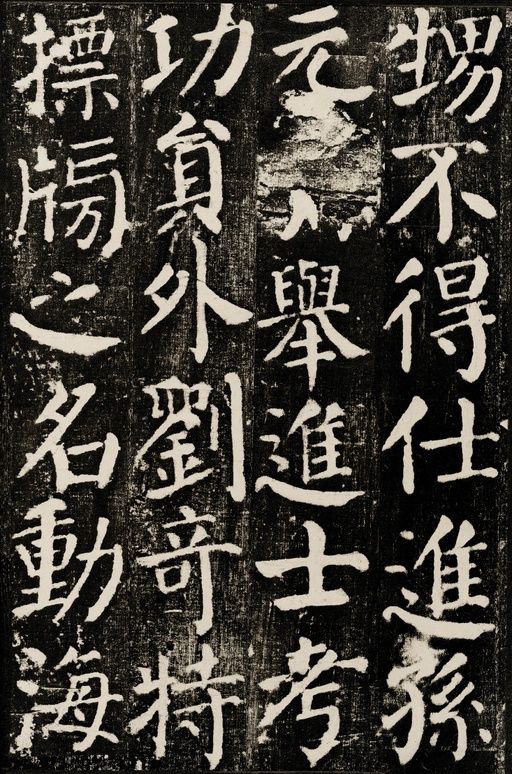 甥不得仕進孫
元舉進士考
功貟外劉竒特
摽牓之名動海